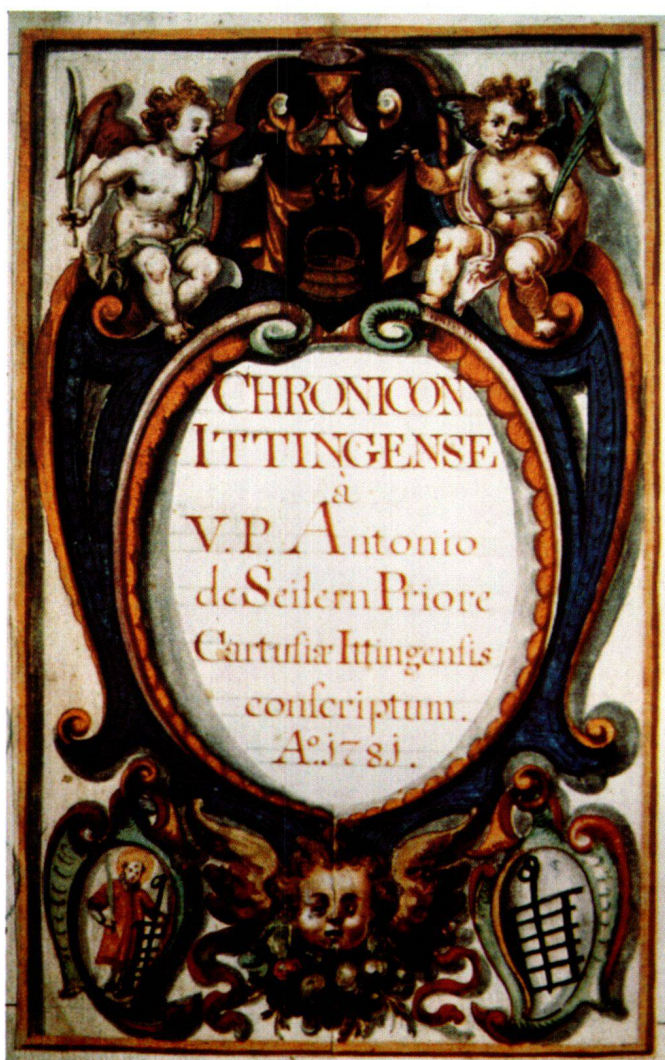 CHRONICON
ITTINGENSE
à
V. P. Antonio
de Seilern Priore
Cartusiæ Ittingensis
conscriptum.
Aº. 1781.